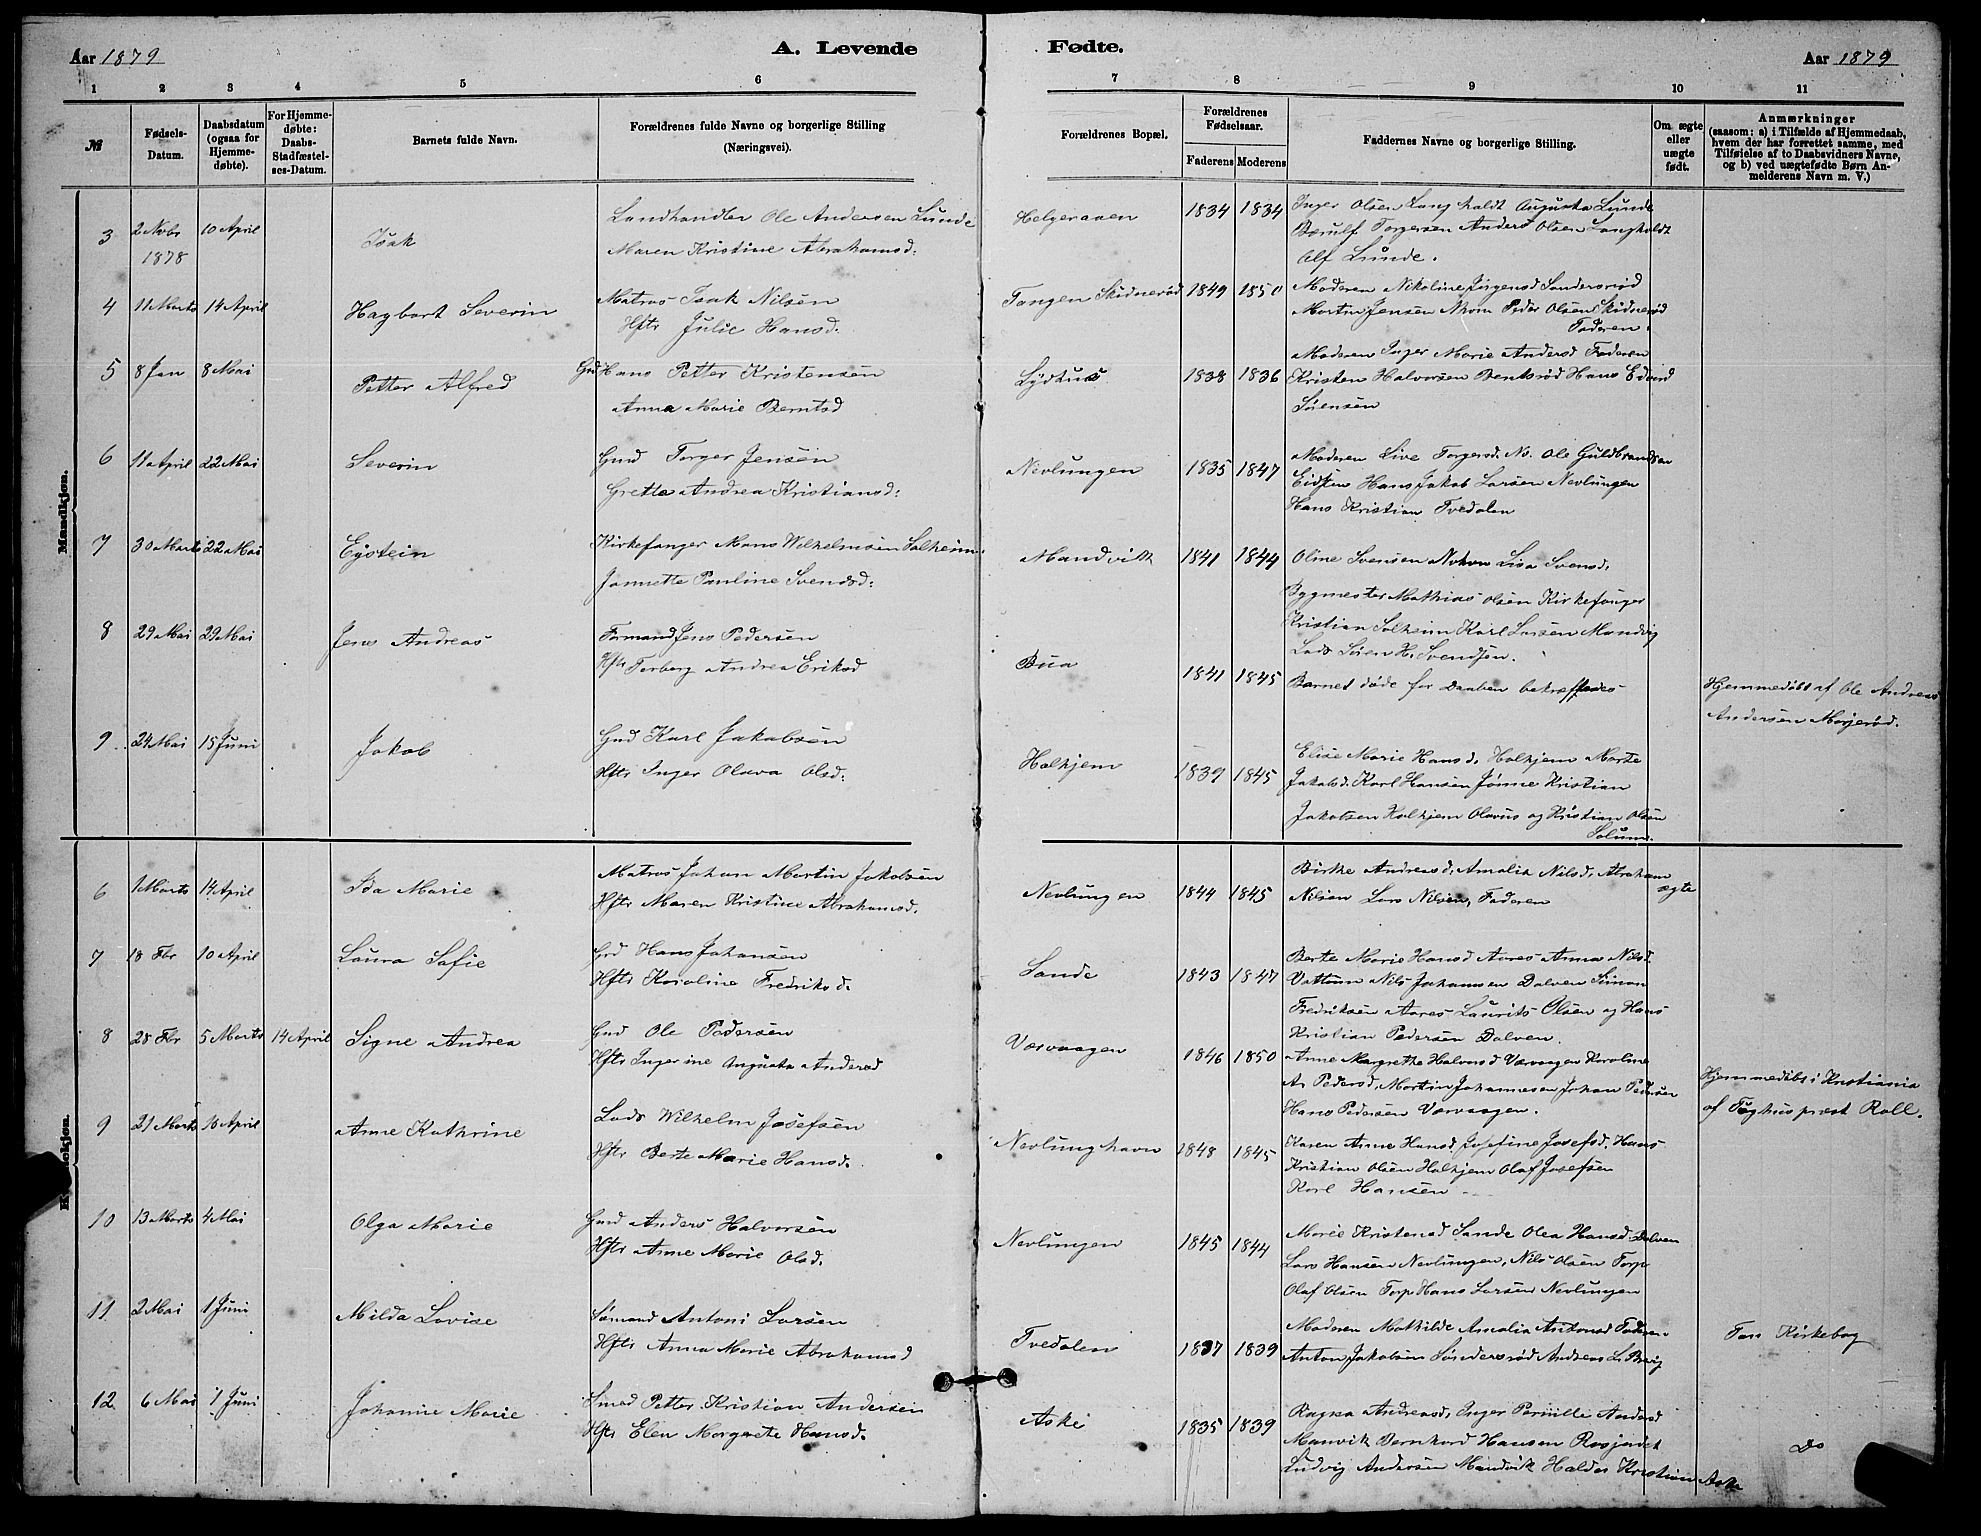 Aar 1879
A. Levende
Fødte.
Aar 1879
1 2 3 4 5 6 7 8 9 10 11
№
Fødsels-
Datum.
Daabsdatum
(ogsaa for
Hjemme-
døbte).
For Hjemme-
døbte:
Daabs-
Stadfæstel-
ses-Datum.
Barnets fulde Navn.
Forældrenes fulde Navne og borgerlige Stilling
(Næringsvei).
Forældrenes Bopæl.
Forældrenes
Fødselsaar.
Faderens Moderens
Faddernes Navne og borgerlige Stilling.
Om ægte
eller
uægte
født.
Anmærkninger
(saasom: a) i Tilfælde af Hjemmedaab,
hvem der har forrettet samme, med
Tilføielse af to Daabsvidners Navne,
og b) ved uægtefødte Børn An-
melderens Navn m. V.)
Mandkjøn.
3 2 Nvbr 10 April
1878
Isak
Landhandler Ole Andersen Lunde
Maren Kristine Abrahamsd:
Helgeraaen 1834 1834
Inger Olsen Langholdt Augusta Lunde
Berulf Torgersen Anders Olsen Langholdt
Olf Lunde.
4 11 Marts 14 April
Hagbart Severin
Matros Isak Nilsen
Hftr Julie Hansd.
Tangen Skidnerød 1849 1850
Moderen Nikoline Jørgensd Søndersrød
Martin Jensen Peder Olsen Skidnerød
Faderen.
5 8 Jan 8 Mai
Petter Alfred
Grd Hans Petter Kristensen
Anna Marie Berntsd
Lydhus 1838 1836
Moderen Inger Marie Andersd Faderen
Kristen Halvorsen Bentsrød Hans Edvard
Sørensen
6 11 April 22 Mai
Severin
Grd Torger Jensen
Grette Andrea Kristiansd:
Nevlungen 1835 1847
Moderen Live Torgersd. Ole Guldbrandsen
Eidsten Hans Jakob Larsen Nevlungen
Hans Kristian Tvedalen
7 30 Marts 22 Mai
Eystein
Kirkesanger Hans Wilhelmsen Solheim.
Jannette Pauline Svendsd:
Mandvik 1841 1844
Oline Svensen Lisa Svensd.
Bygmester Mathias Olsen Kirkesanger
Kristian Solheim Karl Larsen Mandvig
Lods Søren H. Svendsen.
8 29 Mai 29 Mai
Jens Andreas
Jens Pedersen
Hftr Torberg Andrea Eriksd
Bua 1841 1845
Barnet døde før Daaben bekræftedes
Hjemmedøbt af Ole Andreas
Andersen Morjerød.
9. 24 Mai 15 Juni
Jakob
Grd Karl Jakobsen
Hftr Inger Olava Olsd:
Holkjem 1839 1845
Elise Marie Hansd. Holkjem Marte
Jakobsd. Karl Hansen Jønne Kristian
Jakobsen Holkjem Olavus og Kristian Olsen
Solum.
6 1 Marts 14 April
Ida Marie
Matros Johan Martin Jakobsen
Hftr Maren Kristine Abrahamsd.
Nevlungen 1844 1845
Birthe Andreasd, Amalia Nilsd, Abraham
Nilsen Lars Nilsen, Faderen
ægte
7 18 Fbr 10 April
Laura Sofie
Grd Hans Johansen
Hftr Karoline Fredriksd.
Sande 1843 1847
Berte Marie Hansd Aares Anna Nilsd.
Nils Johannsen Dalven Simon
Fredriksen Aares Laurits Olsen og Hans
Kristian Pedersen Dalven.
8 28 Fbr 5 Marts 14 April
Signe Andrea
Grd Ole Pedersen
Hftr Ingerine Augusta Andersd
Værvaagen 1846 1850
Anne Margrethe Halvorsd Værvaagen Karoline
A. Pedersd, Martin Johannesen Johan Pedersen
Hans Pedersen Værvaagen.
Hjemmedøbt i Kristiania
af Tugthuspræst Roll.
9 21 Marts 10 April
Anne Kathrine
Lods Wilhelm Josefsen
Hftr Berte Marie Hansd.
Nevlunghavn 1848 1845
Karen Anne Hansd. Josefine Josefsd. Hans
Kristian Olsen Holkjem Olaf Josefsen
Karl Hansen
10 13 Marts 4 Mai
Olga Marie
Grd Anders Halvorsen
Hftr Anne Marie Olsd.
Nevlungen 1845 1844
Marie Kristensd Sande Olea Hansd. Dalven
Lars Hansen Nevlungen, Nils Olsen Torp
Olaf Olsen Torp Hans Larsen Nevlungen
11 2 Mai 1 Juni
Milda Lovise
Sømand Antoni Larsen
Hftr Anna Marie Abrahamsd
Tvedalen 1837 1839
Moderen Mathilde Amalia Antonsd Faderen
Anton Jakobsen Søndersrød Andreas L. Berg
Tan Kirkebog
12. 6 Mai 1 Juni
Johanne Marie
Smed Petter Kristian Andersen
Hftr Elen Margrete Hansd.
Aske 1835 1839
Ragna Andreasd, Inger Pernille Andersd
Manvik Bernhard Hansen Rosjordet
Ludvig Andersen Mandvik Haldor Kristian Aske
Do